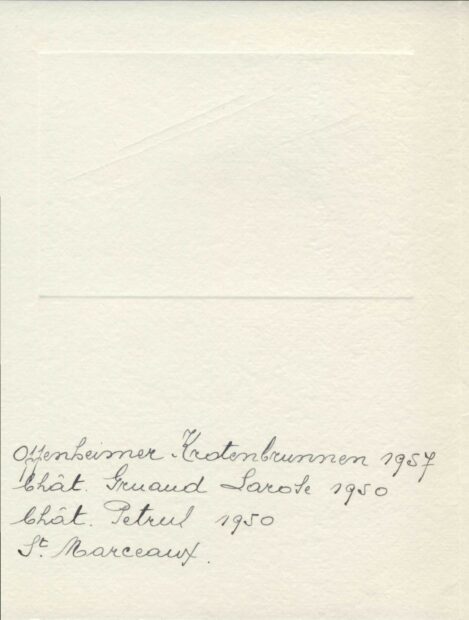 Oppenheimer Krotenbrunnen 1957
Chât. Gruaud Larose 1950
Chât. Petrus 1950
St Marceaux.